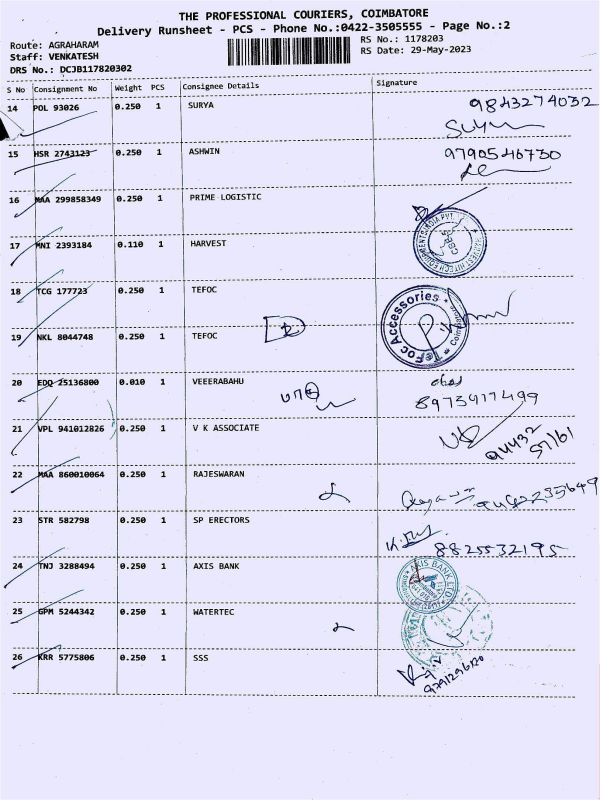 THE PROFESSIONAL COURIERS, COIMBATORE
Delivery Runsheet - PCS - Phone No.:0422-3505555 - Page No.:2
Route: AGRAHARAM RS No.: 1178203
Staff: VENKATESH RS Date: 29-May-2023
DRS No.: DCJB117820302
S No Consignment No Weight PCS Consignee Details Signature
14 POL 93026 0.250 1 SURYA 9843274032
15 HSR 2743123 0.250 1 ASHWIN 9790546730
16 MAA 299858349 0.250 1 PRIME LOGISTIC
17 MNI 2393184 0.110 1 HARVEST
18 TCG 177723 0.250 1 TEFOC
TeFoc Accessories
19 NKL 8044748 0.250 1 TEFOC
20 EDQ 25136800 0.010 1 VEEERABAHU
8973917499
21 VPL 941012826 0.250 1 V K ASSOCIATE
94432
57161
22 MAA 860010064 0.250 1 RAJESWARAN
23 STR 582798 0.250 1 SP ERECTORS
8825532195
24 TNJ 3288494 0.250 1 AXIS BANK
AXIS BANK LTD
25 GPM 5244342 0.250 1 WATERTEC
26 KRR 5775806 0.250 1 SSS
9791296120